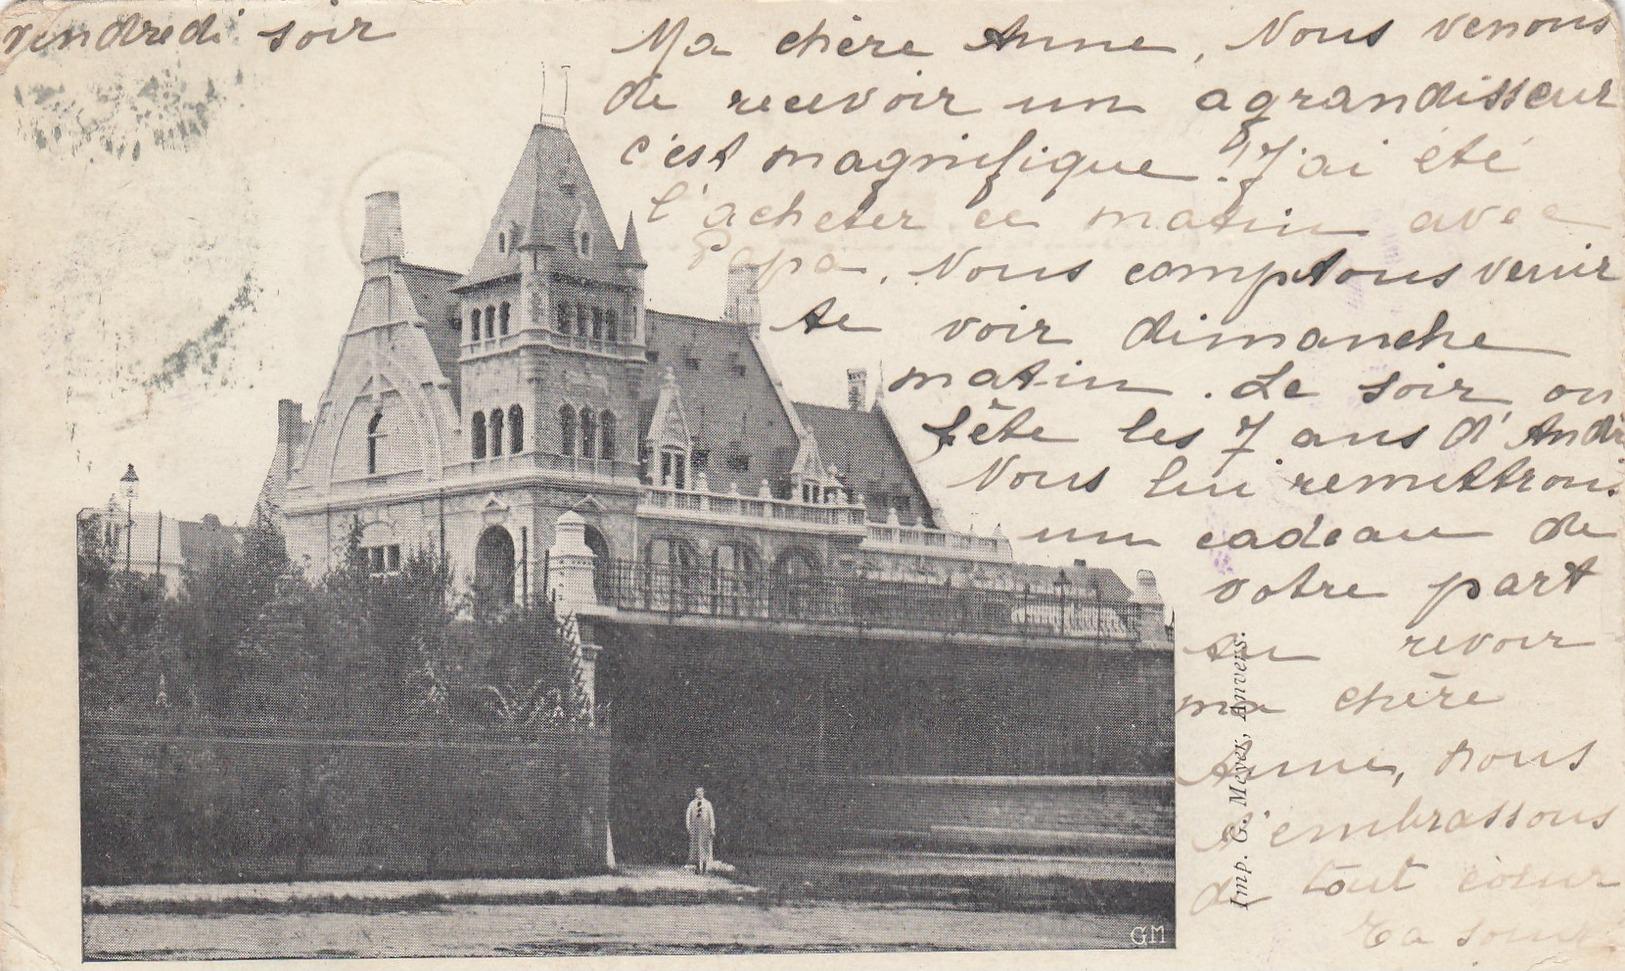 vendredi soir
Ma chère Anne, Nous venons
de recevoir un agrandisseur
c'est magnifique ! J'ai été
l'acheter ce matin avec
Papa. Nous comptons venir
te voir dimanche
matin. Le soir on
fête les 7 ans d'André
Nous lui remettrons
un cadeau de
votre part
au revoir
ma chère
Anne, nous
t'embrassons
de tout coeur
Ta soeur
Imp. G. Meyer, Anvers.
GM